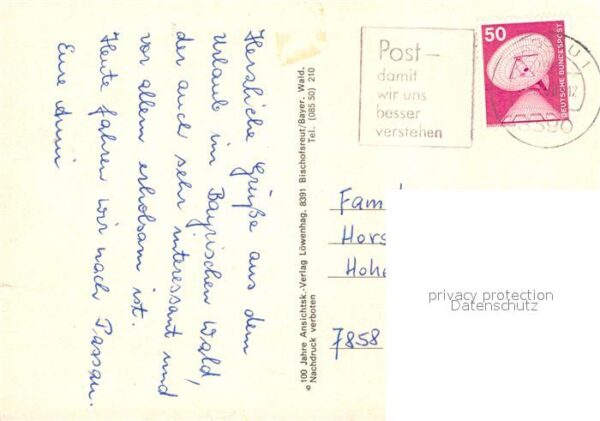 Herzliche Grüße aus dem
Urlaub im Bayrischen Wald,
der auch sehr interessant und
vor allem erholsam ist.
Heute fahren wir nach Passau.
Eure Anni
© 100 Jahre Ansichtsk.-Verlag Löwenhag, 8391 Bischofsreut/Bayer. Wald,
Nachdruck verboten Tel. (085 50) 210
Post—
damit
wir uns
besser
verstehen
50
DEUTSCHE BUNDESPOST
8390
Fam
Hors
Hohe
7858
privacy protection
Datenschutz